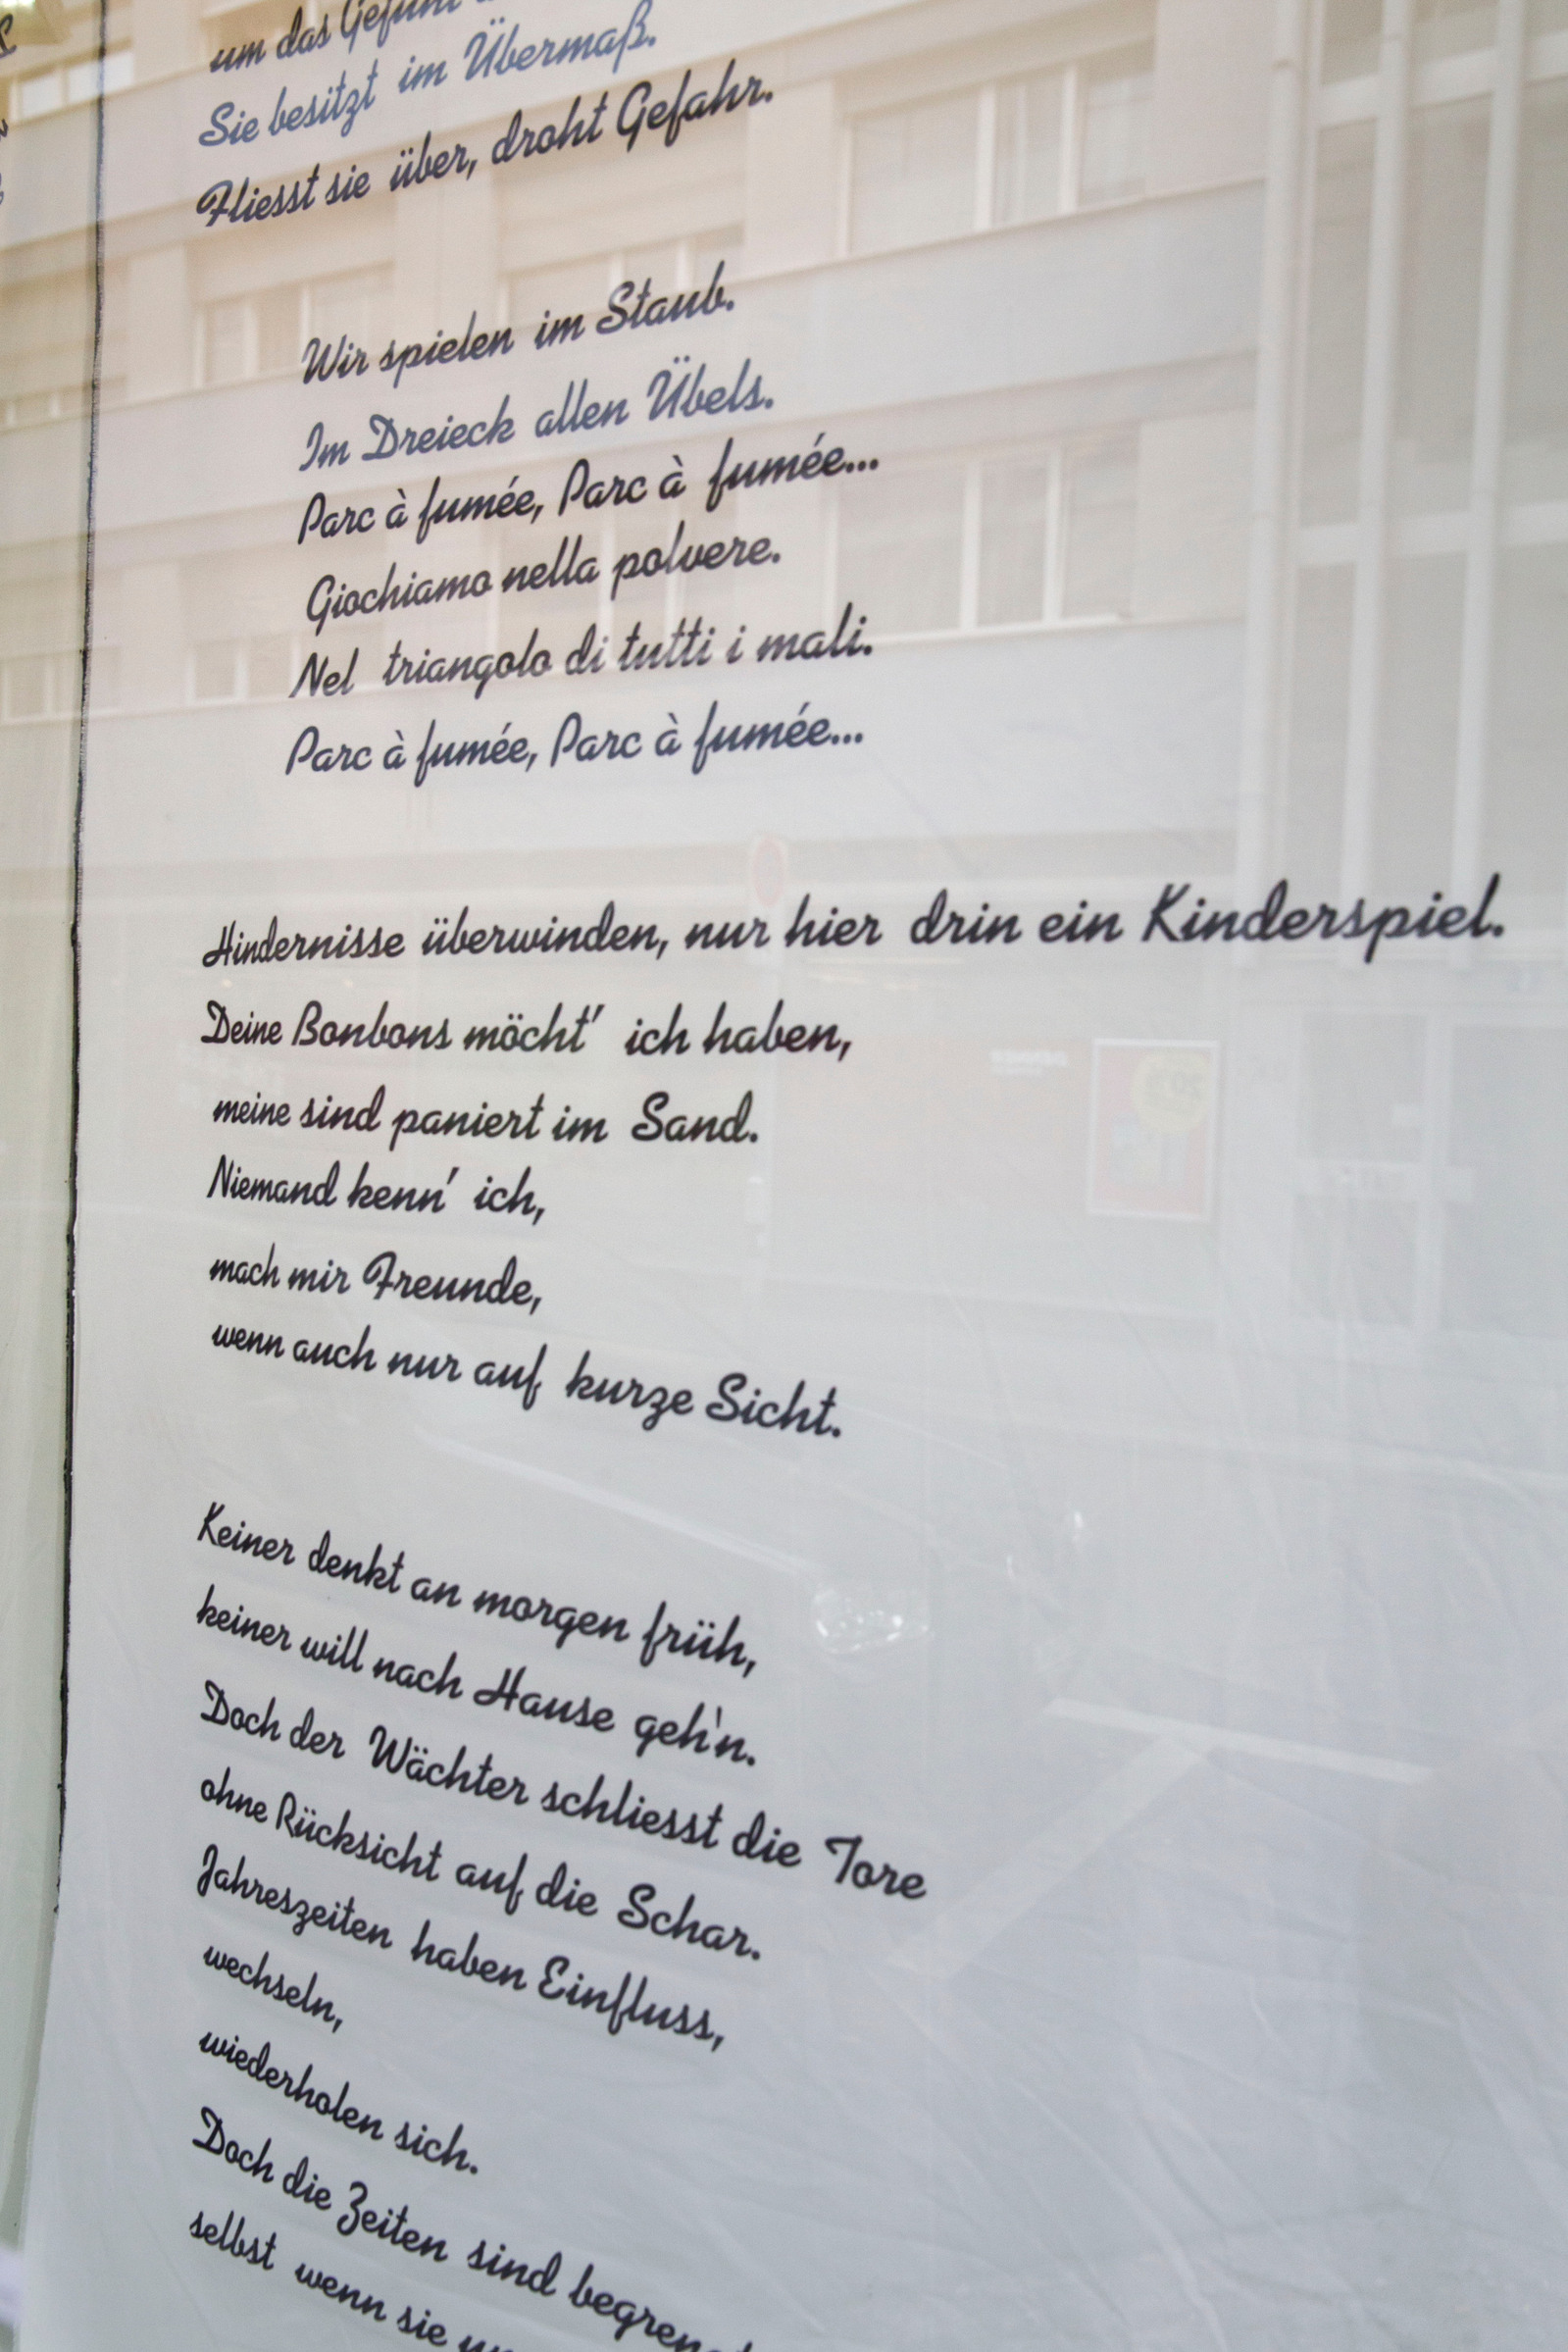 um das Gefühl
Sie besitzt im Übermaß.
Fliesst sie über, droht Gefahr.
Wir spielen im Staub.
Im Dreieck allen Übels.
Parc à fumée, Parc à fumée...
Giochiamo nella polvere.
Nel triangolo di tutti i mali.
Parc à fumée, Parc à fumée...
Hindernisse überwinden, nur hier drin ein Kinderspiel.
Deine Bonbons möcht' ich haben,
meine sind paniert im Sand.
Niemand kenn' ich,
mach mir Freunde,
wenn auch nur auf kurze Sicht.
Keiner denkt an morgen früh,
keiner will nach Hause geh'n.
Doch der Wächter schliesst die Tore
ohne Rücksicht auf die Schar.
Jahreszeiten haben Einfluss,
wechseln,
wiederholen sich.
Doch die Zeiten sind
selbst wenn sie